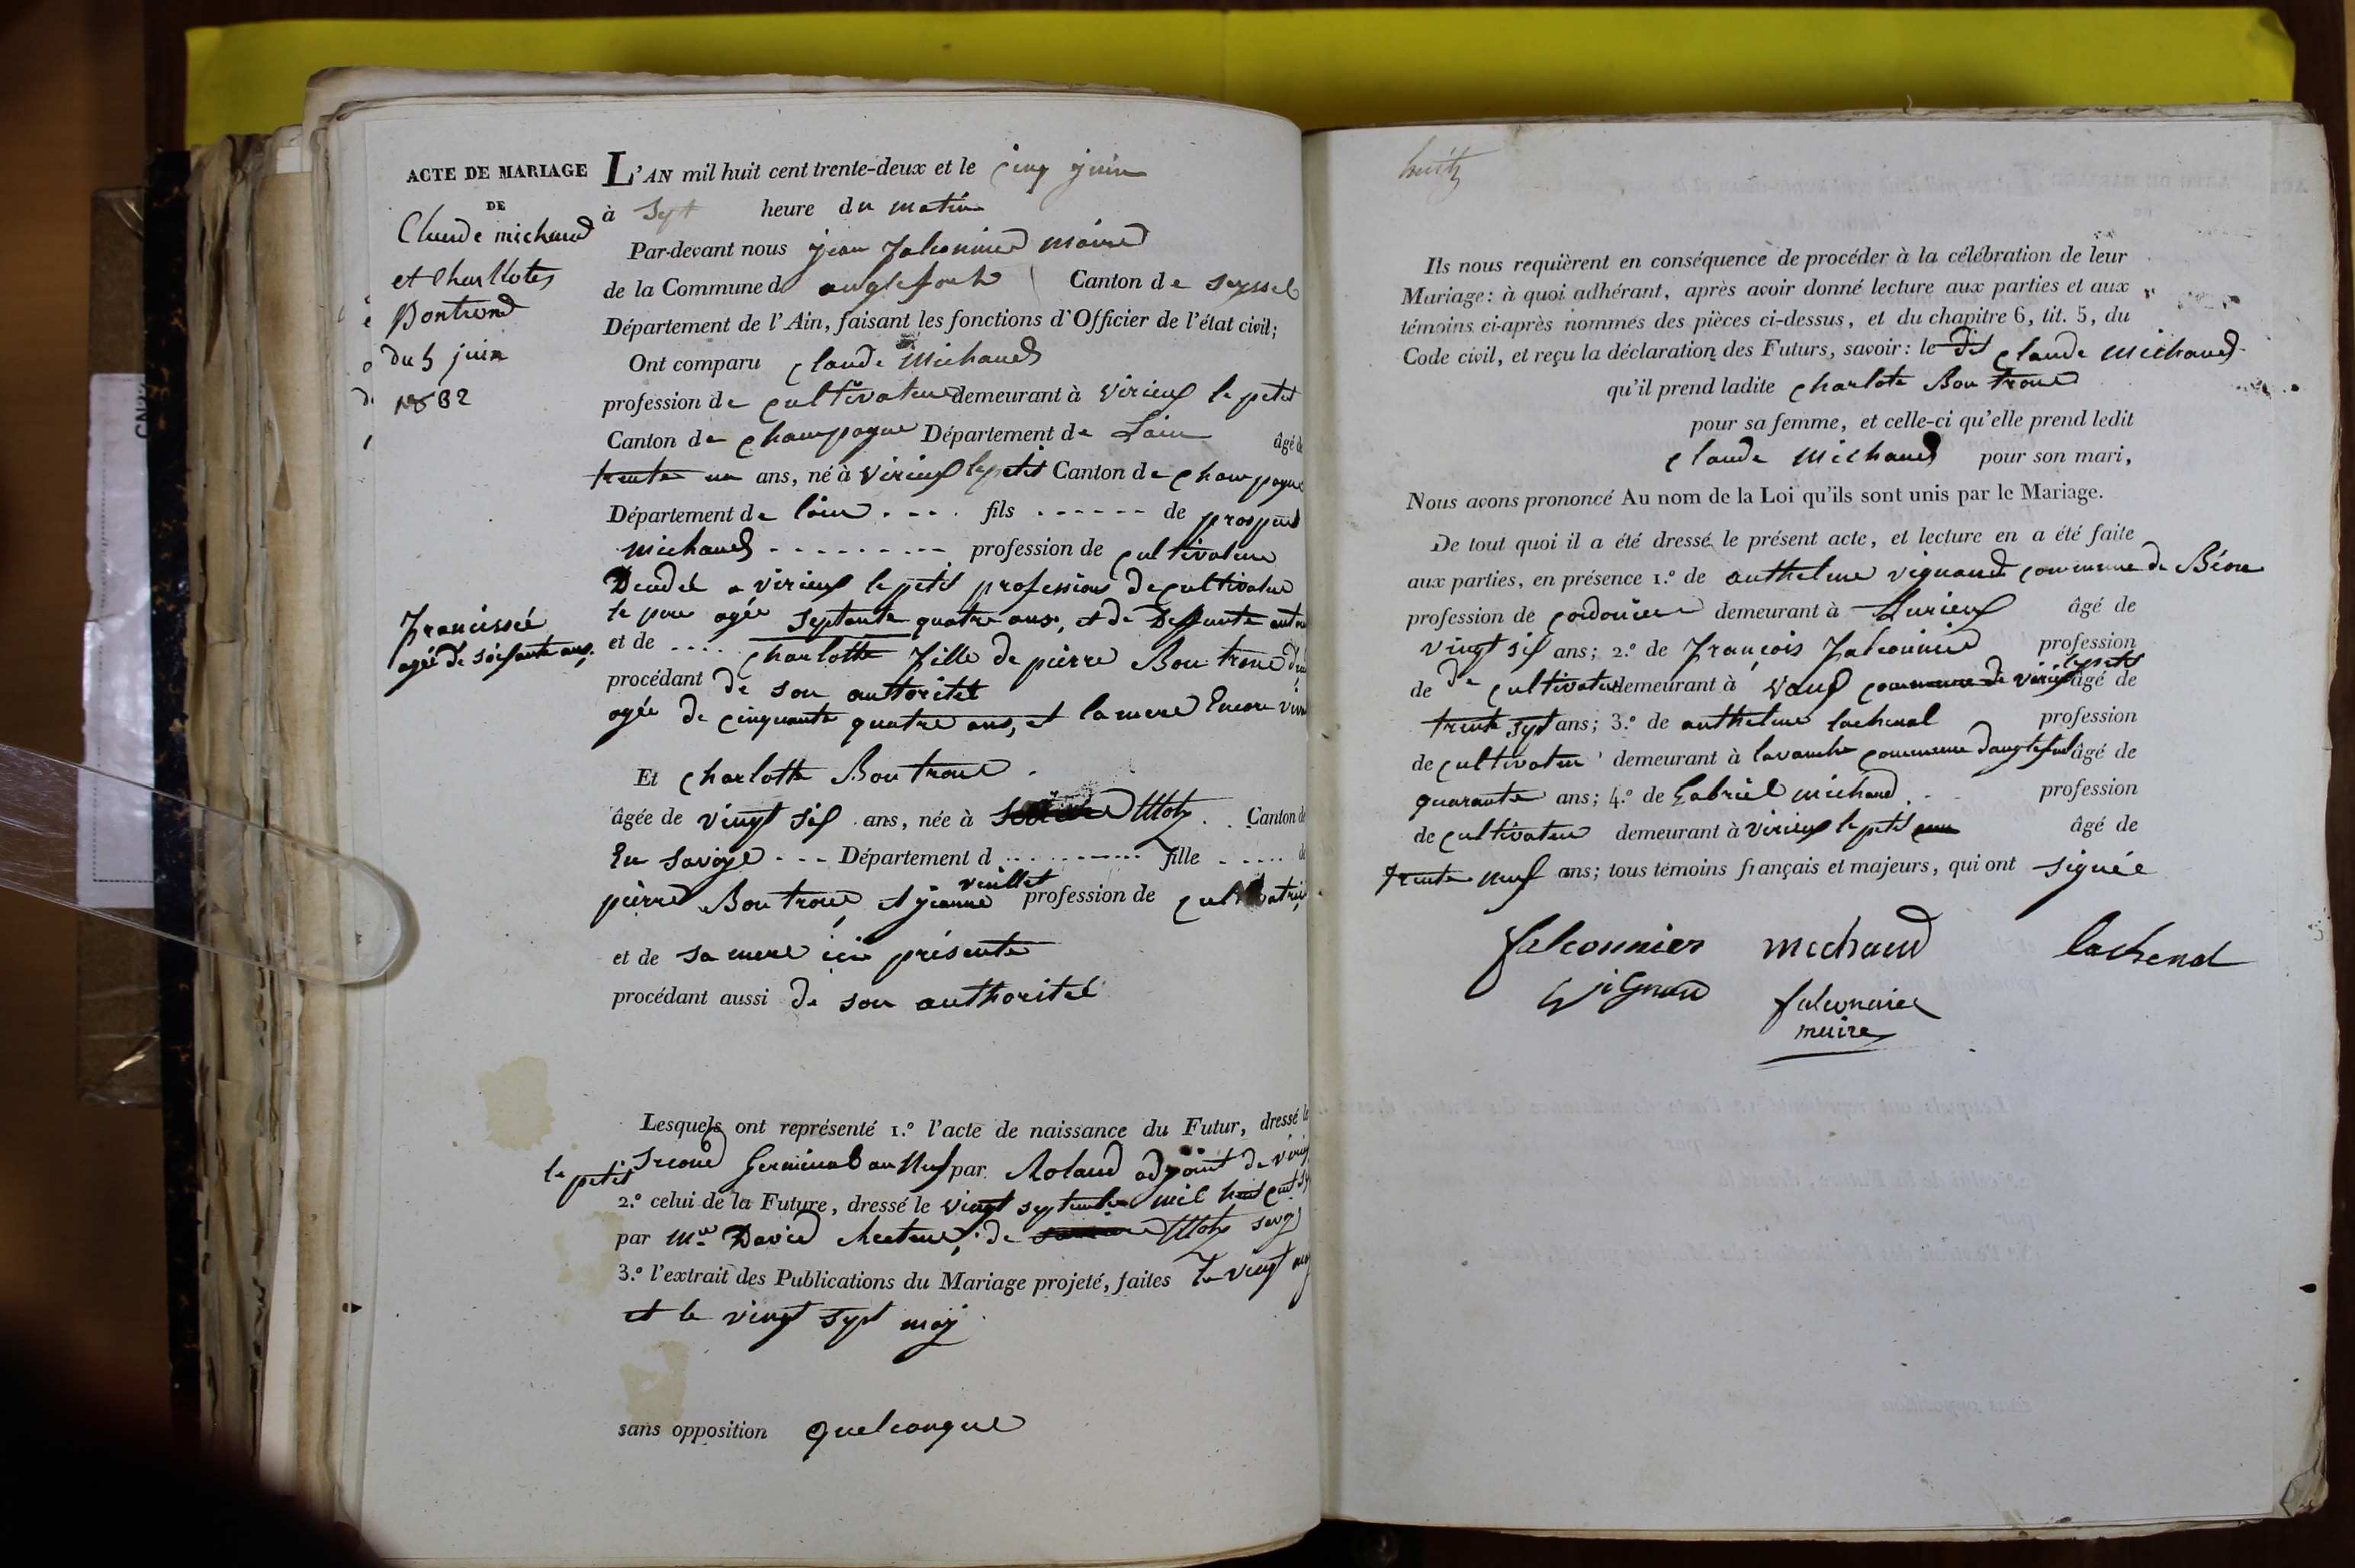 ACTE DE MARIAGE
DE
Claude michaud
et Charllotes
Bontrond
du 5 juin
1832
L'AN mil huit cent trente-deux et le cinq juin
à Sept heure du matin
Par-devant nous jean falconnier maire
de la Commune d anglefort Canton de seyssel
Département de l'Ain, faisant les fonctions d'Officier de l'état civil;
Ont comparu claude Michaud
profession de cultivateur demeurant à virieux le petit
Canton de champagne Département de Lain âgé de
trente un ans, né à virieux le petit Canton de champagne
Département de lain fils de prosper
michaud profession de cultivateur
a virieux le petit profession de cultivateur
le pere agée septante quatre ans, et de Deffunte
francissée
agée de soisante ans
et de charlotte fille de pierre Bontrond
procédant de son authoritee
agée de cinquante quatre ans, et la mere Encore
Et charlotte Bontrond
âgée de vingt six ans, née à Motz Canton de
En savoye Département d fille de
pierre Bontrond et jeanne veuillet profession de
et de sa mere ici présente
procédant aussi de son authoritee
Lesquels ont représenté 1.º l'acte de naissance du Futur, dressé le
le petit
second Germinal an Neuf par Roland adjoint de virieux
2.º celui de la Future, dressé le vingt septembre mil huit cent
par Mr David Recteur, de Motz
3.º l'extrait des Publications du Mariage projeté, faites Le vingt
et le vingt sept may
sans opposition quelconque
huit
Ils nous requièrent en conséquence de procéder à la célébration de leur
Mariage: à quoi adhérant, après avoir donné lecture aux parties et aux
témoins ci-après nommés des pièces ci-dessus, et du chapitre 6, tit. 5, du
Code civil, et reçu la déclaration des Futurs, savoir: le dit claude Michaud
qu'il prend ladite charlote Bontrond
pour sa femme, et celle-ci qu'elle prend ledit
claude Michaud pour son mari,
Nous avons prononcé Au nom de la Loi qu'ils sont unis par le Mariage.
De tout quoi il a été dressé le présent acte, et lecture en a été faite
aux parties, en présence 1.º de anthelme vignand commune de Béon
profession de cordonier demeurant à Lurieux âgé de
vingt six ans; 2.º de françois falconnier profession
de de cultivateur demeurant à vaux commune de virieux le petit âgé de
trente sept ans; 3.º de anthelme lachenal profession
de cultivateur demeurant à lavanche commune danglefort âgé de
quarante ans; 4.º de Gabriel michaud profession
de cultivateur demeurant à virieux le petit âgé de
trente neuf ans; tous témoins français et majeurs, qui ont signée
falconnier michaud lachenal
vignand falconnier
maire